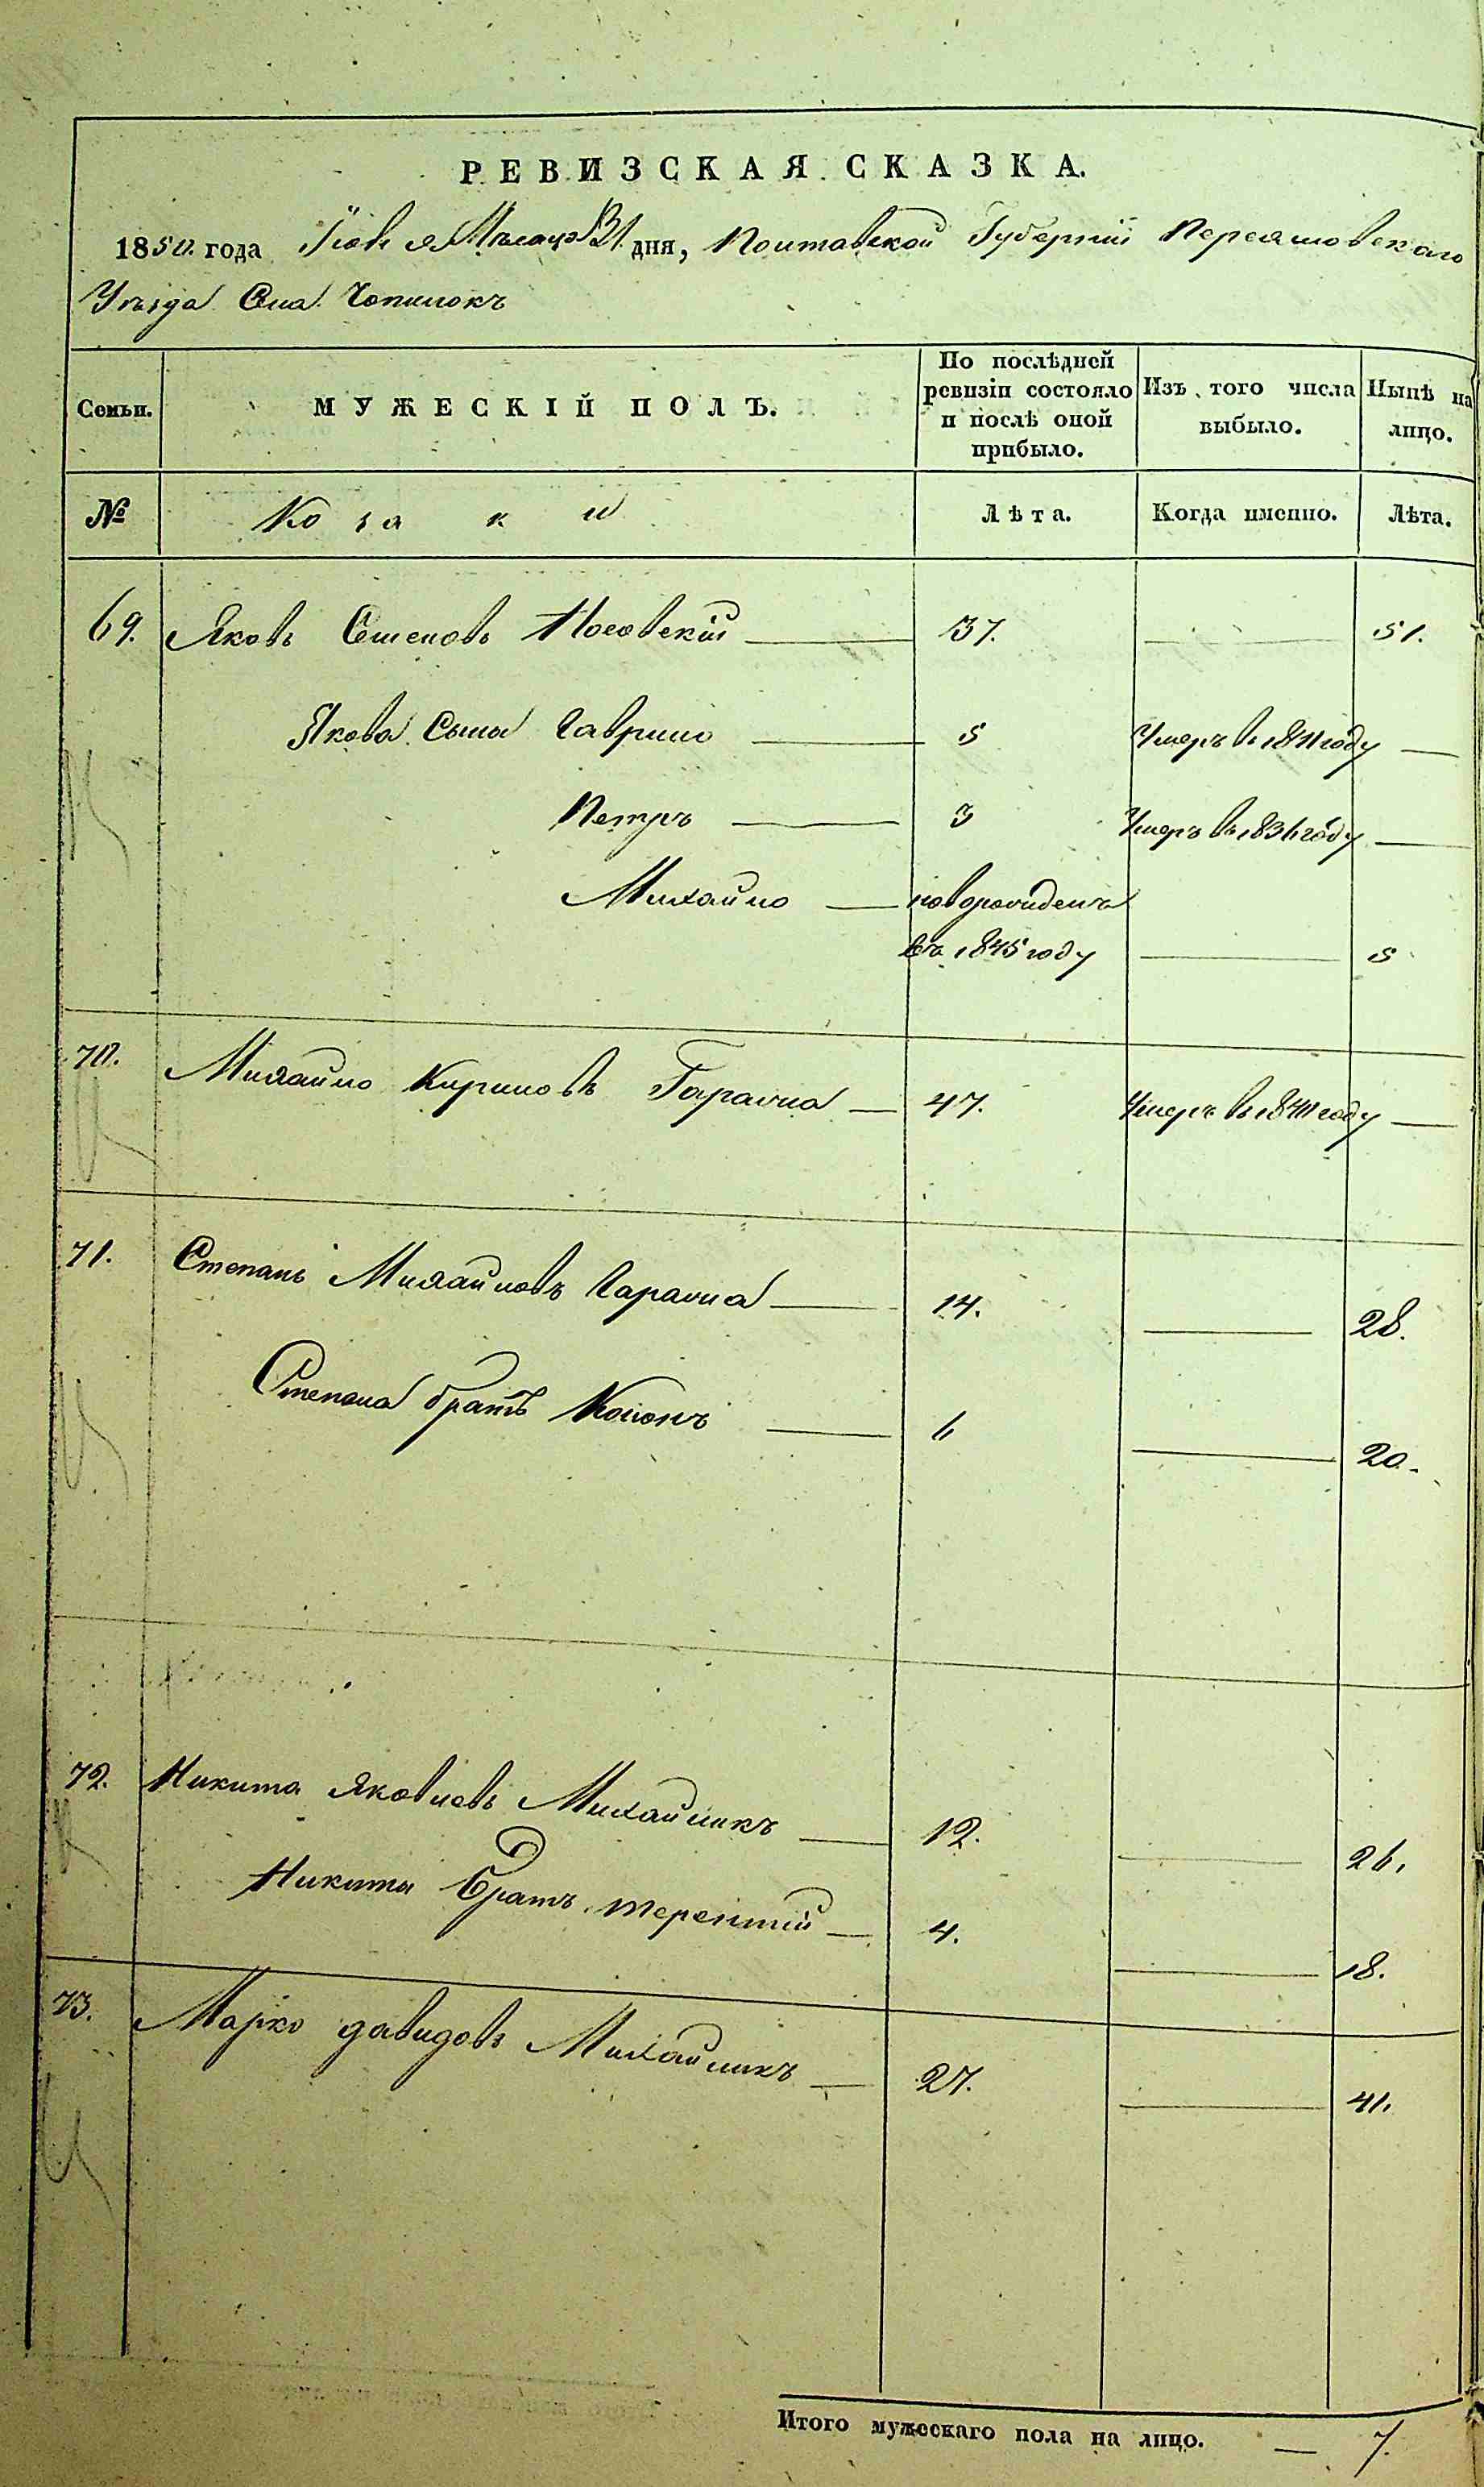 РЕВИЗСКАЯ СКАЗКА.
1850. года Іюня Мѣсяца 31. дня, Полтавской Губерніи Переяловского
Уѣзда Села Чопилокъ
Семьи.
МУЖЕСКІЙ ПОЛЪ.
По послѣдней ревизіи состояло и послѣ оной прибыло.
Изъ того числа выбыло.
Нынѣ на лицо.
№ Козаки Лѣта. Когда именно. Лѣта.
69. Яковъ Семеновъ Носовскій — 37. — 51.
Якова Сына Гаврило — 5 Умеръ въ 1841 году —
Петръ — 3 Умеръ въ 1836 году —
Михайло — новорожденъ
въ 1845 году — 5
70. Михайло Кириловъ Гаража — 47. Умеръ въ 1841 году —
71. Степанъ Михайловъ Гаража — 14. — 28.
Степана братъ Кононъ — 6 — 20.
72. Никита Яковлевъ Михайликъ — 12. — 26.
Никиты братъ Терентій — 4. — 18.
73. Марко Давидовъ Михайликъ — 27. — 41.
Итого мужескаго пола на лицо. — 7.